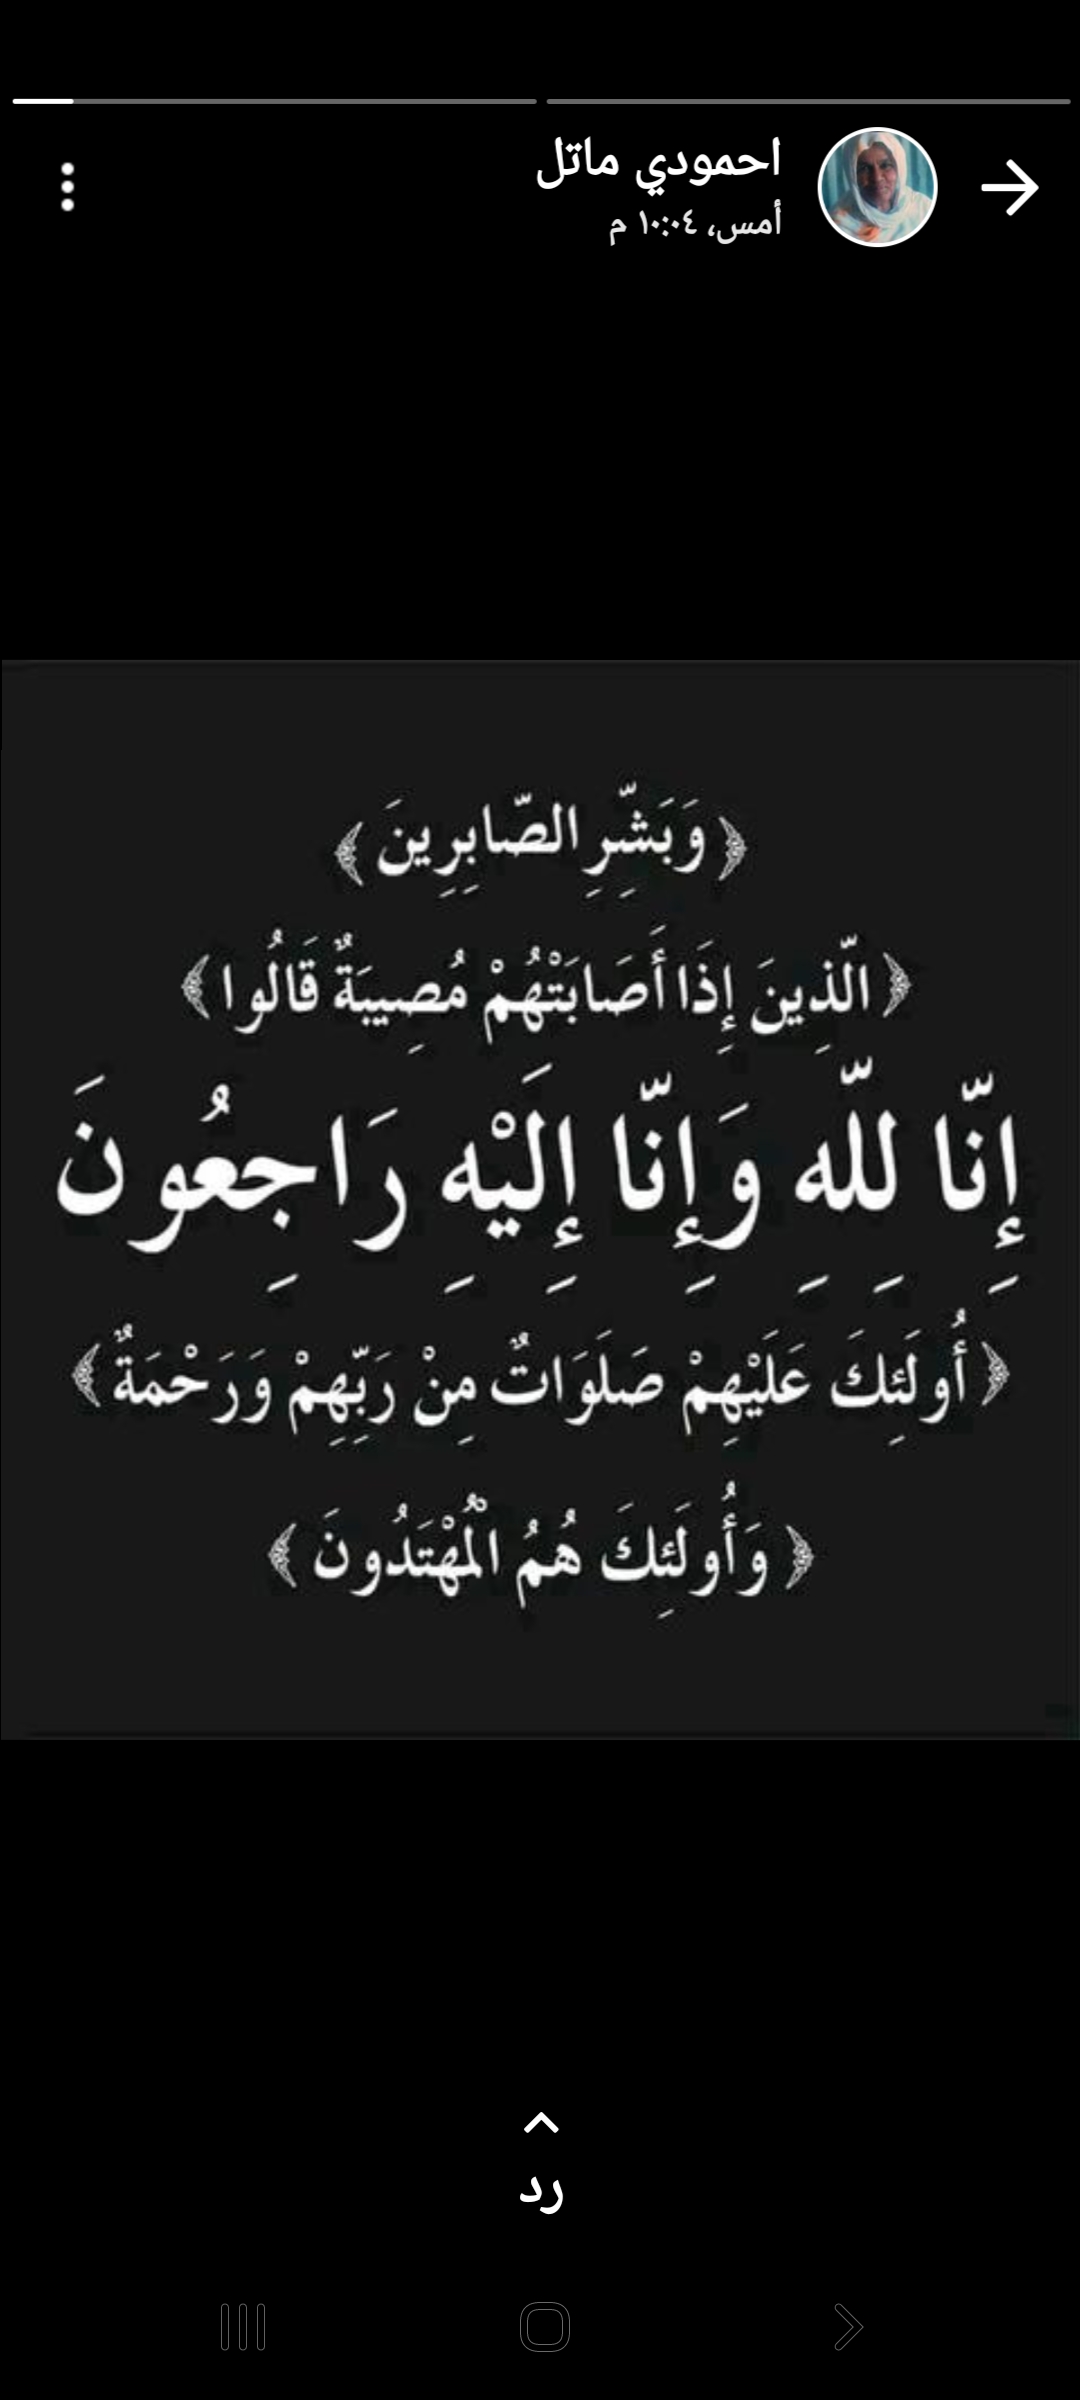 احمودي ماتل
أمس، ١٠:٠٤ م
﴿وَبَشِّرِ الصَّابِرِينَ﴾
﴿الَّذِينَ إِذَا أَصَابَتْهُمْ مُصِيبَةٌ قَالُوا﴾
إِنَّا لِلَّهِ وَإِنَّا إِلَيْهِ رَاجِعُونَ
﴿أُولَئِكَ عَلَيْهِمْ صَلَوَاتٌ مِنْ رَبِّهِمْ وَرَحْمَةٌ﴾
﴿وَأُولَئِكَ هُمُ الْمُهْتَدُونَ﴾
رد